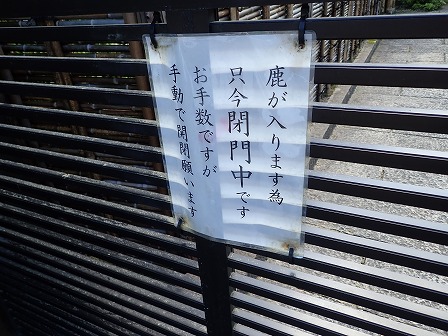 鹿が入ります為
只今閉門中です
お手数ですが
手動で開閉願います